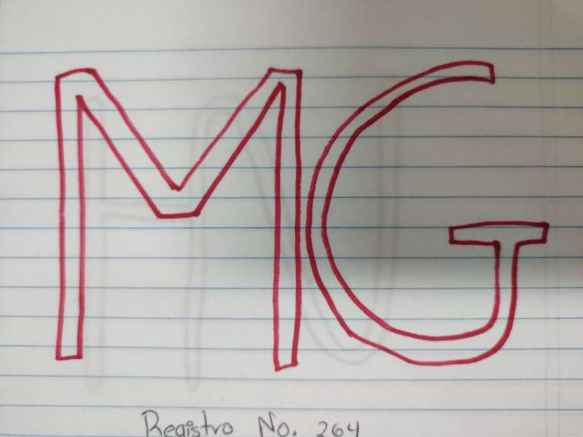 MG
Registro No. 264